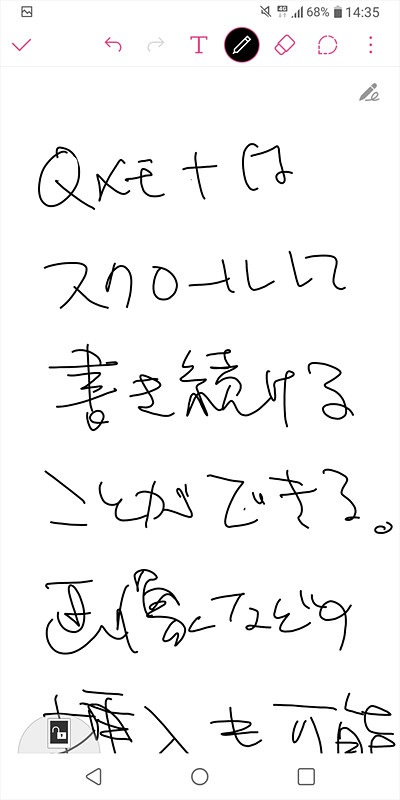 68% 14:35
T
Qメモ+は
スクロールして
書き続ける
ことができる。
画像などの
挿入も可能